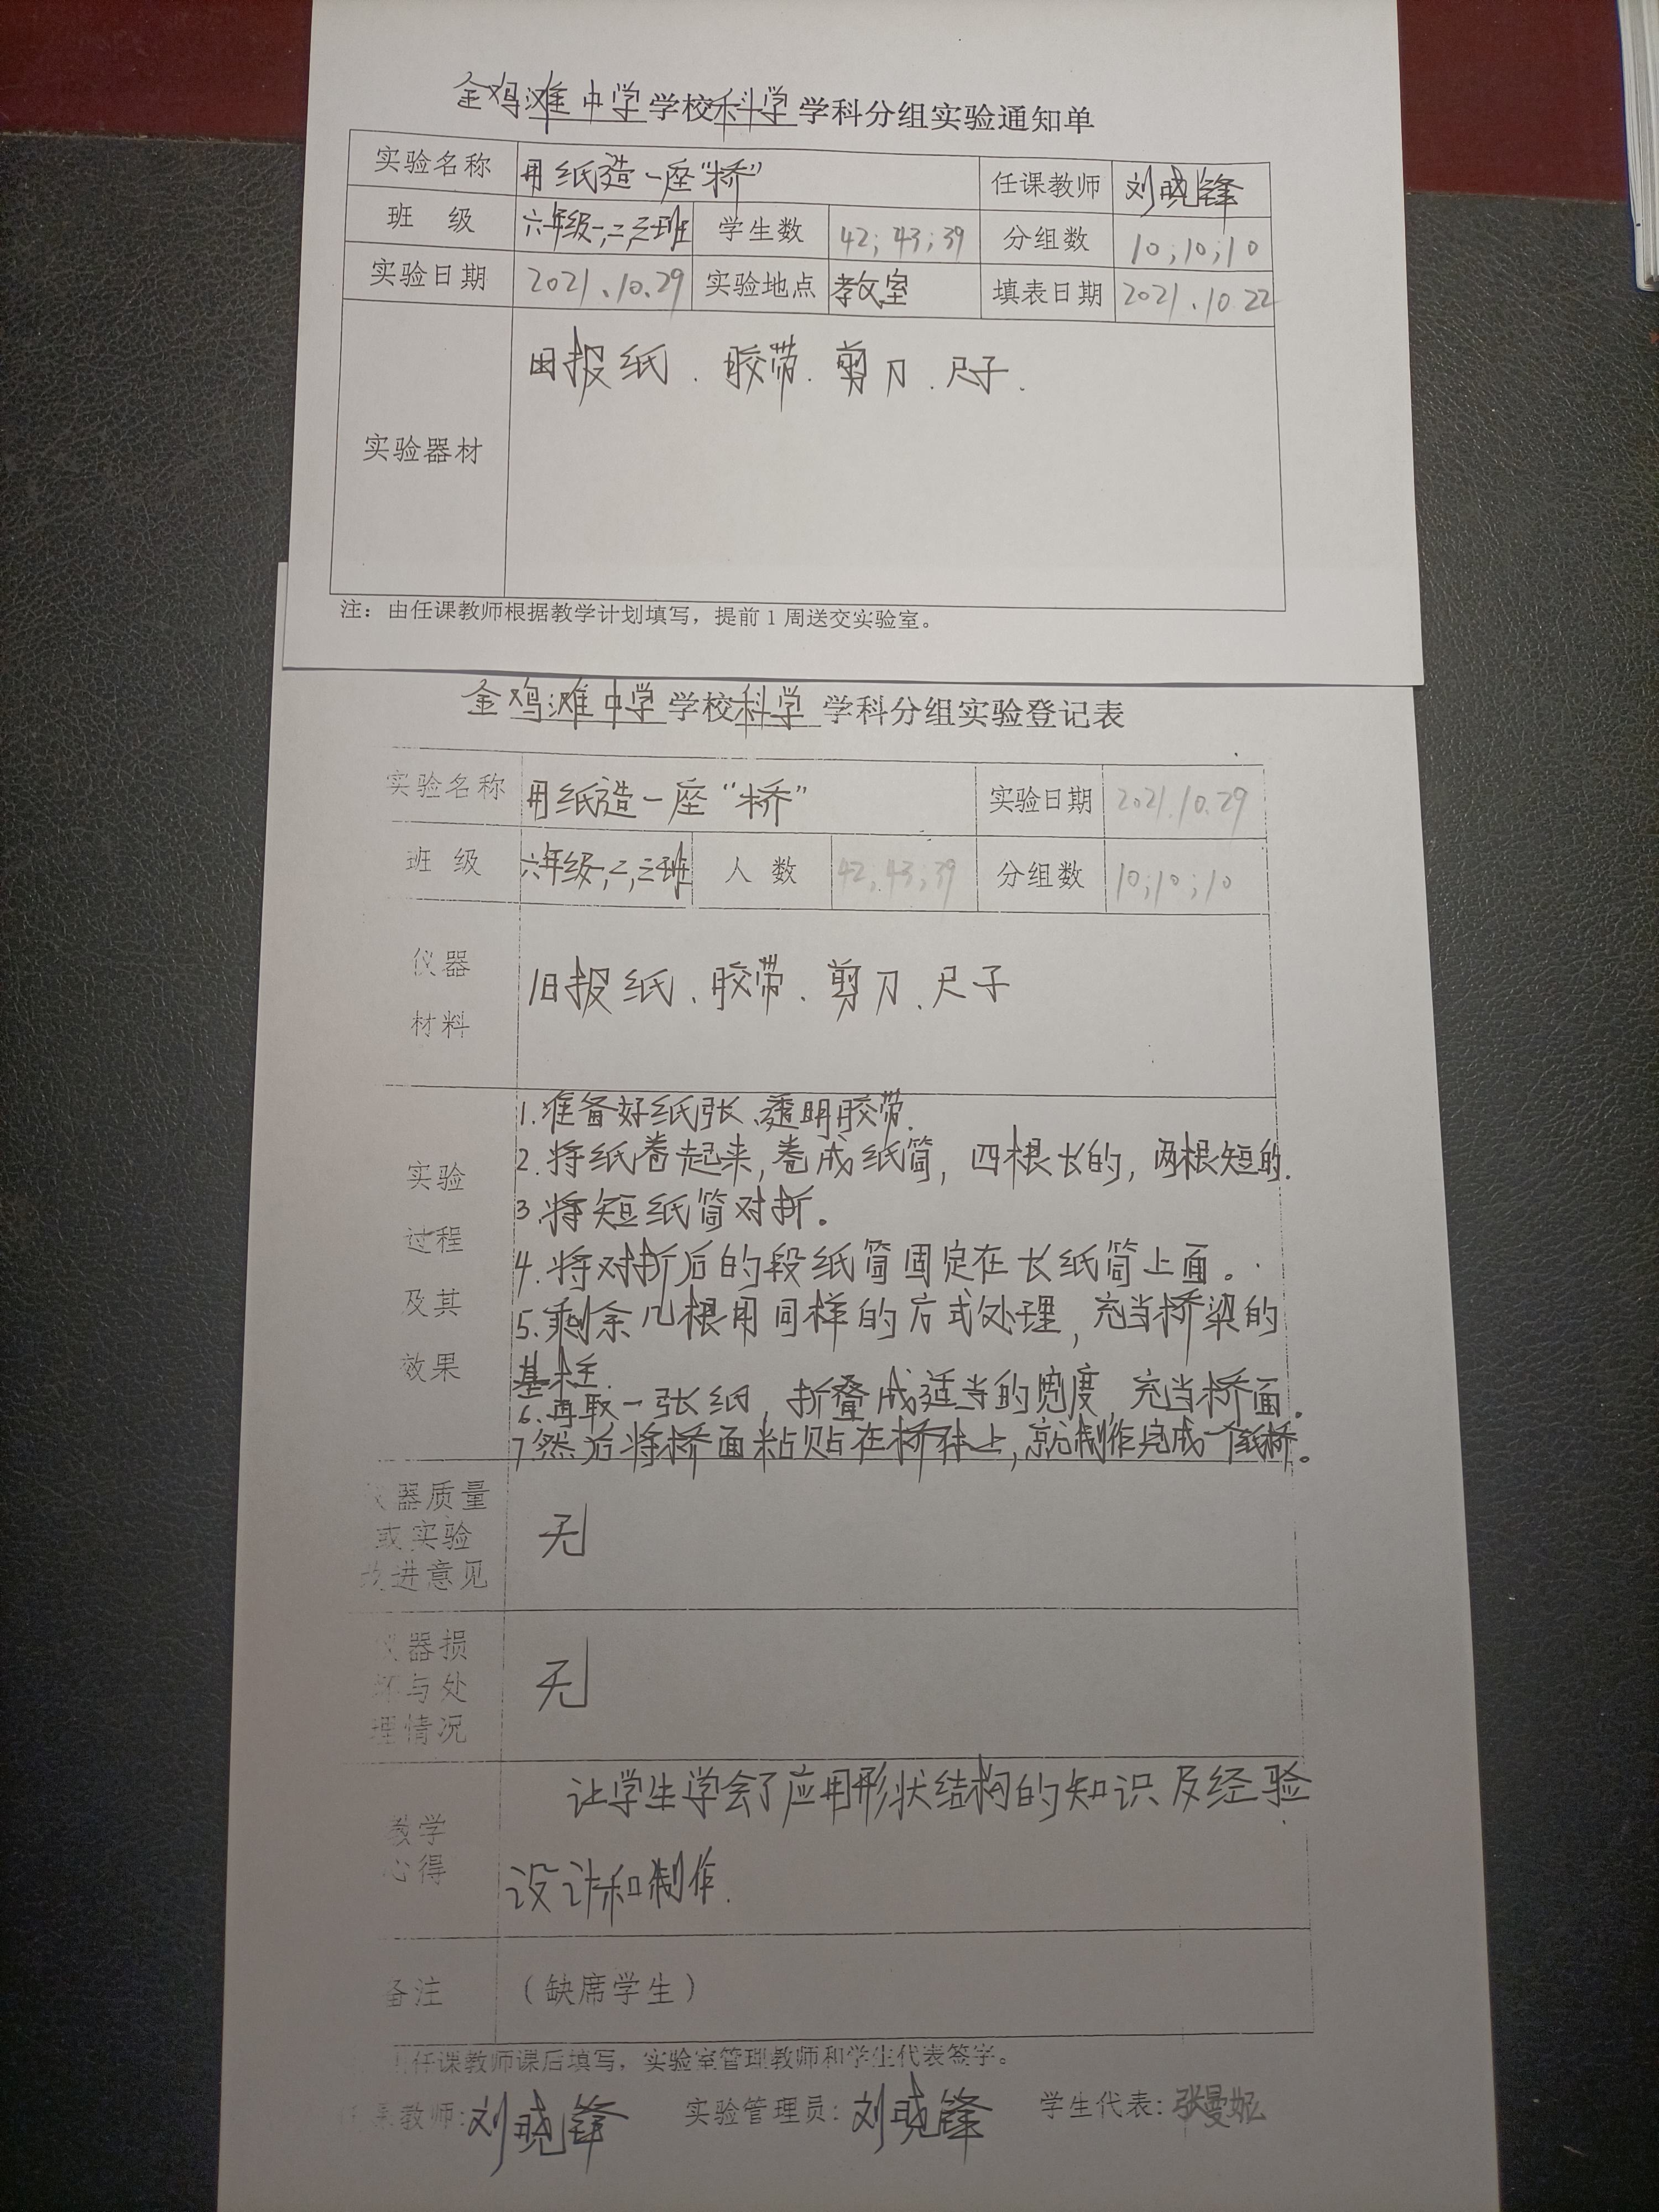 金鸡滩中学学校科学学科分组实验通知单
实验名称 用纸造一座“桥” 任课教师 刘晓锋
班 级 六年级一,二,三班 学生数 42;43;39 分组数 10;10;10
实验日期 2021.10.29 实验地点 教室 填表日期 2021.10.22
实验器材 旧报纸、胶带、剪刀、尺子.
注：由任课教师根据教学计划填写，提前1周送交实验室。
金鸡滩中学学校科学 学科分组实验登记表
实验名称 用纸造一座“桥” 实验日期 2021.10.29
班 级 六年级一,二,三班 人 数 42;43;39 分组数 10;10;10
仪器
材料
旧报纸、胶带、剪刀、尺子
实验
过程
及其
效果
1.准备好纸张、透明胶带.
2.将纸卷起来,卷成纸筒,四根长的,两根短的.
3.将短纸筒对折。
4.将对折后的段纸筒固定在长纸筒上面。
5.剩余几根用同样的方式处理,充当桥梁的
基柱.
6.再取一张纸,折叠成适当的宽度,充当桥面.
7.然后将桥面粘贴在桥柱上,就制作完成一个纸桥。
仪器质量
或实验
改进意见
无
仪器损
坏与处
理情况
无
教学
心得
让学生学会了应用形状结构的知识及经验
设计和制作.
备注 （缺席学生）
任课教师课后填写，实验室管理教师和学生代表签字。
任课教师:刘晓锋 实验管理员:刘晓锋 学生代表:张曼妮